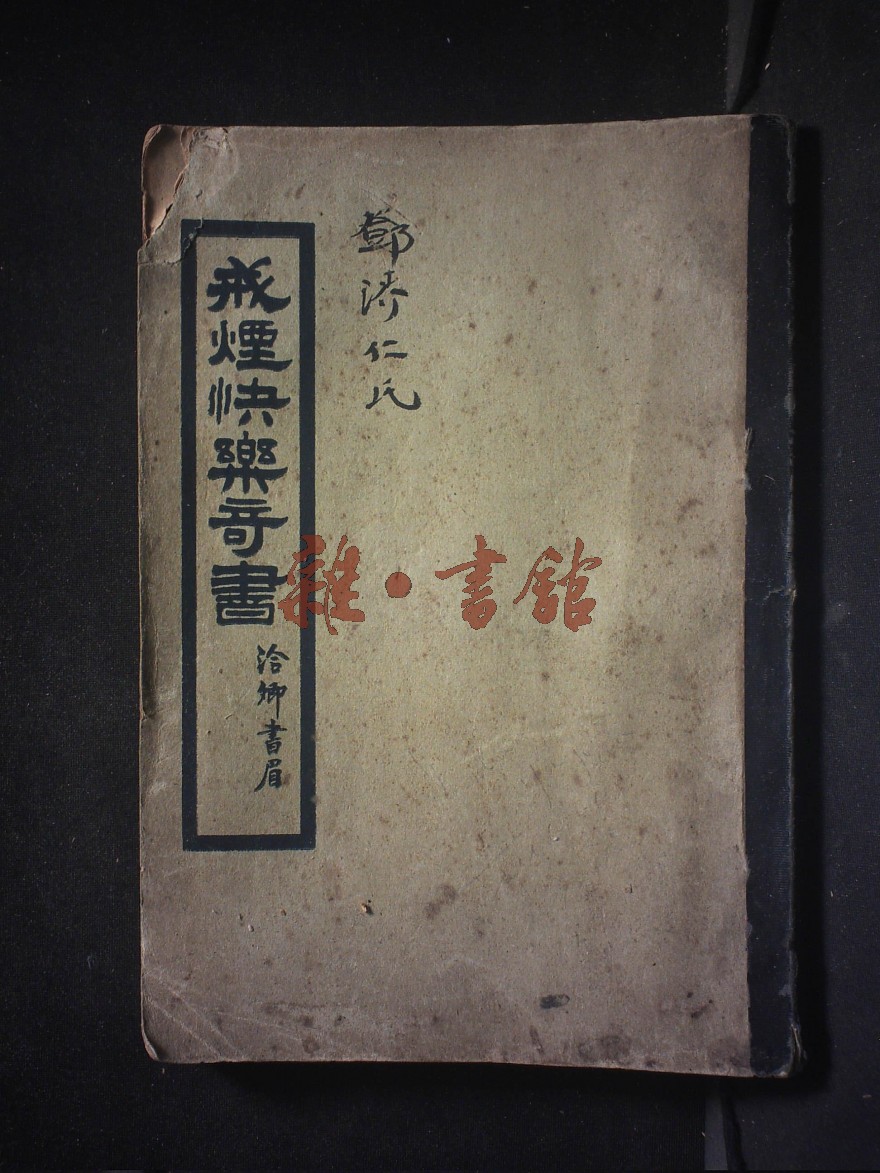 鄧濟仁氏
戒煙快樂奇書
洽卿書眉
雜·書館